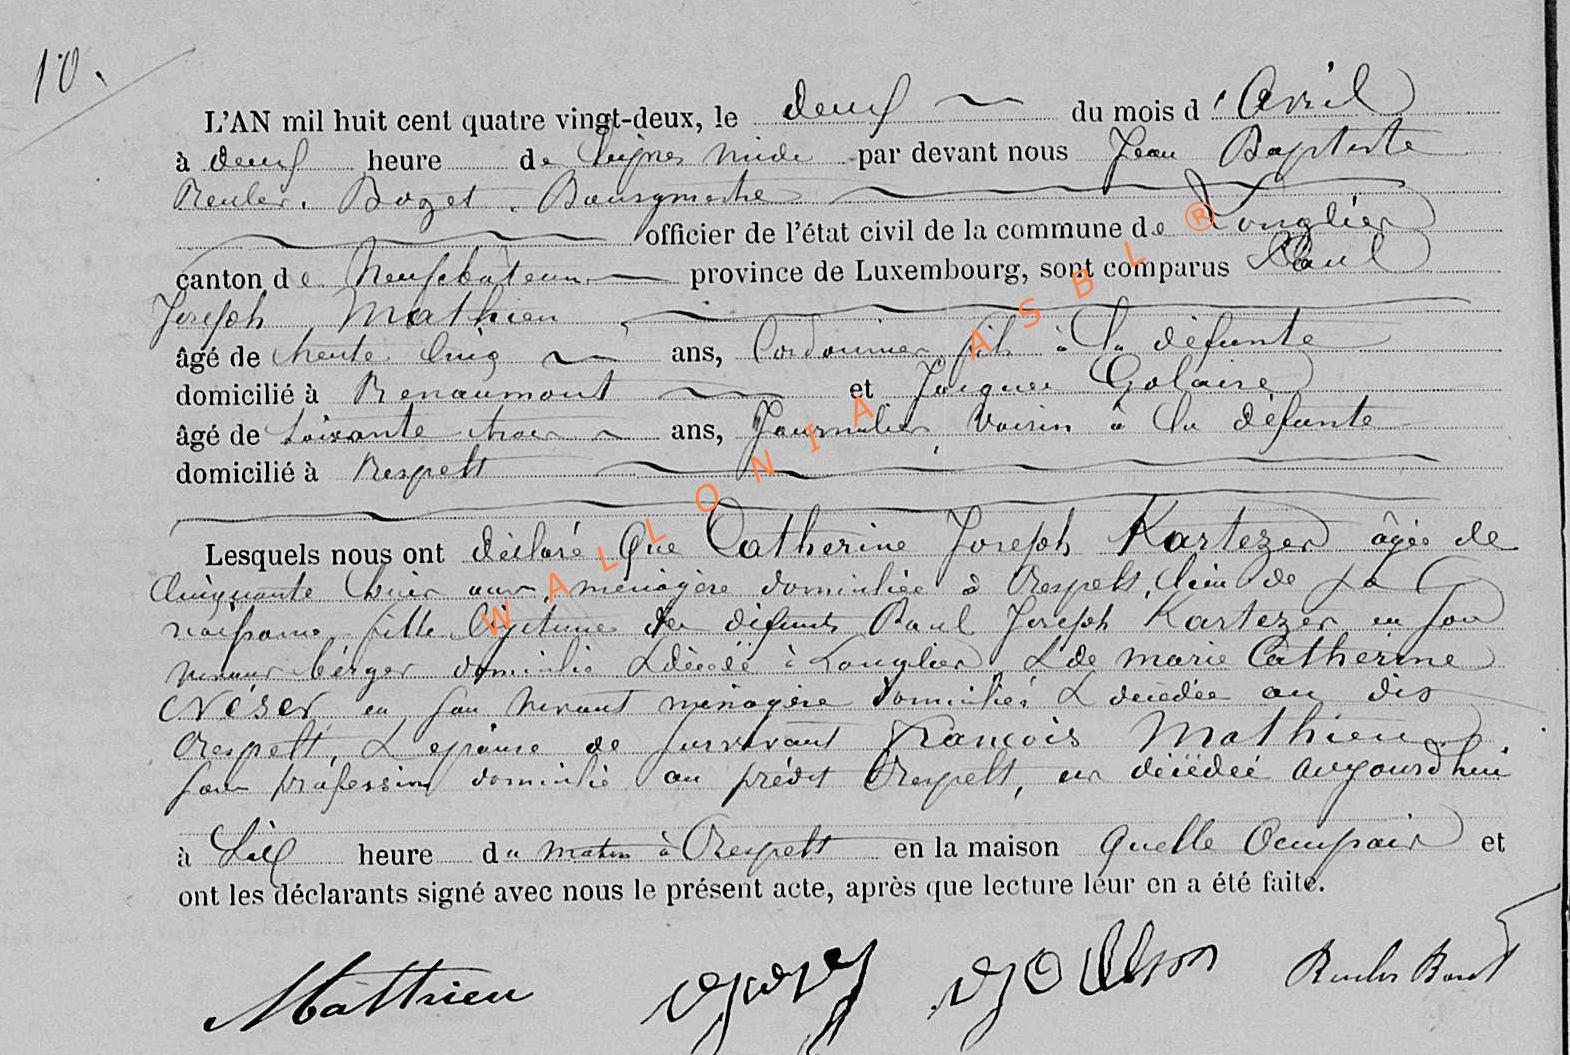 10.
L'AN mil huit cent quatre vingt-deux, le deux du mois d'Avril
à deux heure de par devant nous Jean Baptiste
Reuler. Bozet. Bourgmestre
officier de l'état civil de la commune de Longlier
canton de Neufchâteau province de Luxembourg, sont comparus Paul
Joseph Mathieu
âgé de trente Cinq ans, Cordonnier fils à la défunte
domicilié à Renaumont et Jacques Golaire
âgé de soixante trois ans, Journalier, Voisin à la défunte
domicilié à Respelt
Lesquels nous ont déclaré Que Catherine Joseph Kartezer âgée de
Cinquante ans ménagère domiciliée à Respelt, lieu de sa
naissance, fille légitime de défunts Paul Joseph Kartezer en son
vivant bérger domicilié & décédé à Longlier & de marie Catherine
Néser en son vivant ménagère domiciliée & décédée au dis
Respelt, & épouse de survivant François Mathieu
sans profession domicilié au prédit Respelt, est décédée aujourd'hui
à Six heure du matin à Respelt en la maison Quelle Occupair et
ont les déclarants signé avec nous le présent acte, après que lecture leur en a été faite.
Mathieu
WALLONIA ASBL ®